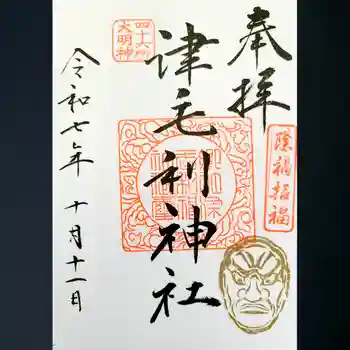 奉拝
除禍招福
津毛利神社
四十六所
大明神
令和七年 十月十一日